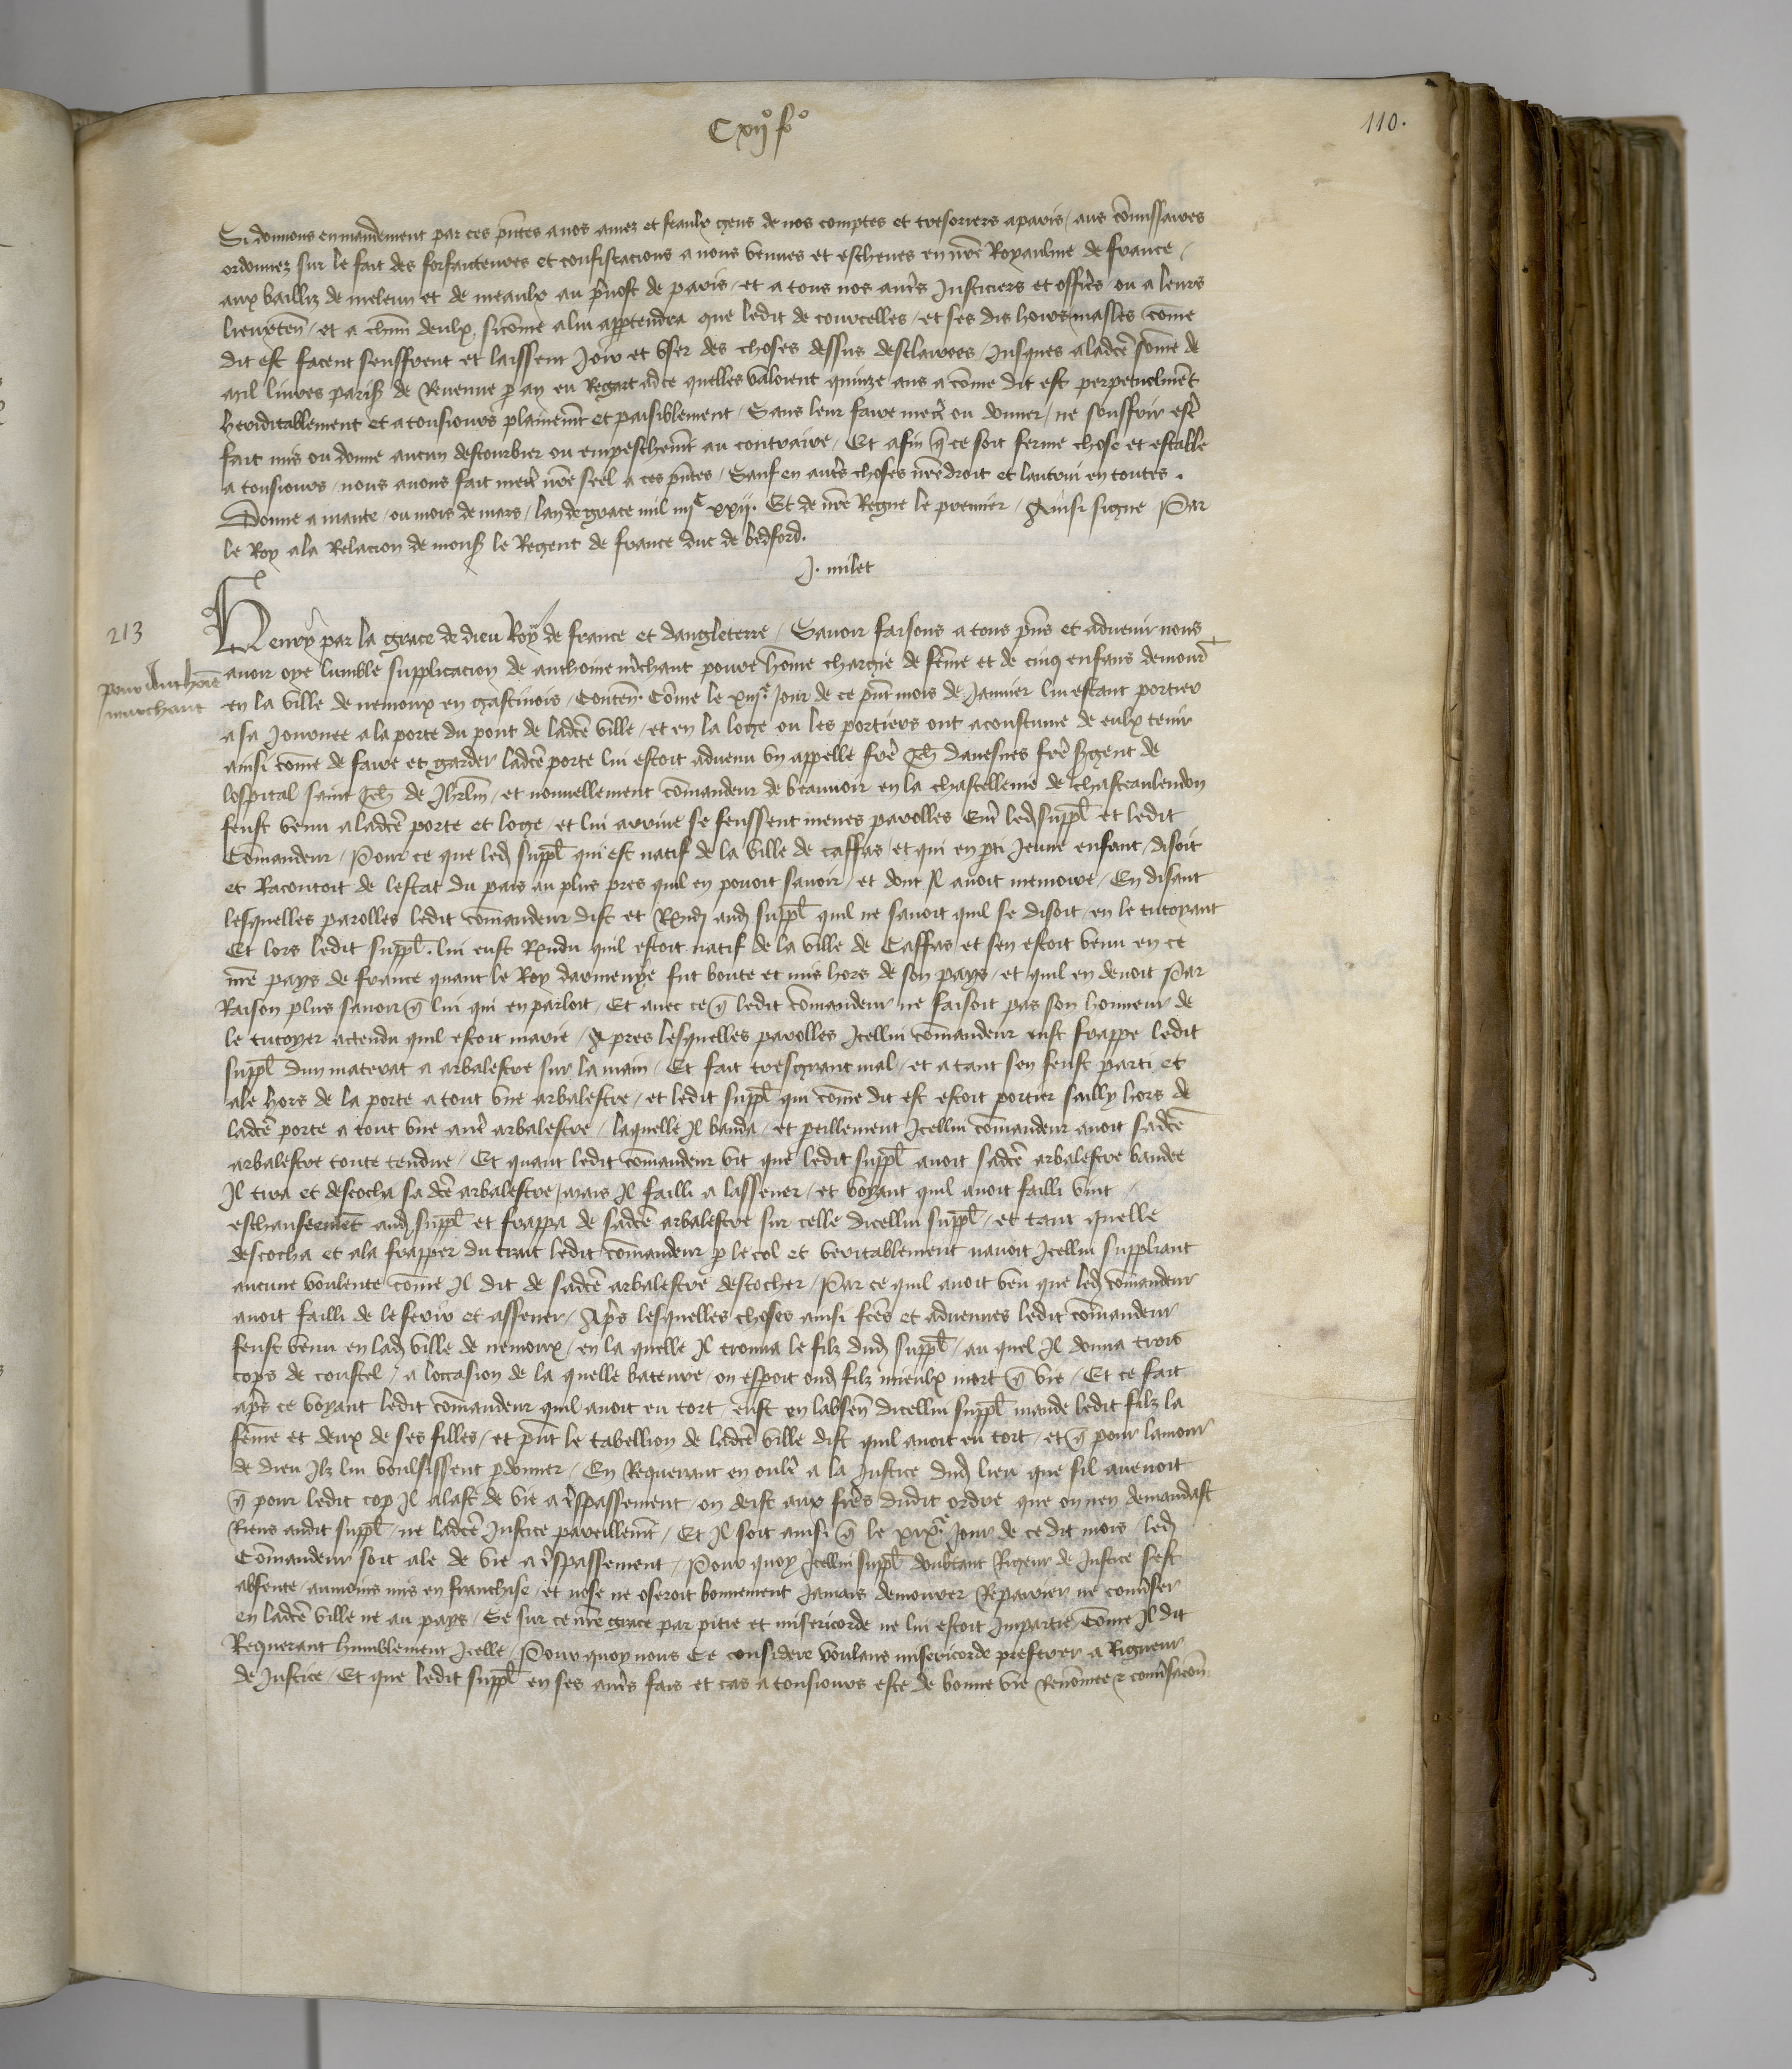 Cxijº fº
110.
Si donnons en mandement par ces pñtes a nos amez et feaulx gens de nos comptes et tresoriers a paris / aus cõmissaires
ordonnez sur le fait des forfaictures et confiscacions a nous venues et escheues en nre Royaulme de france /
aux bailliz de meleun et de meaulx au pvost de paris / et a tous nos autˢ Justiciers et officˢ / ou a leurs
lieuxten̄ / et a chũn deulx / sicõme a lui appartendra que ledit de courcelles / et ses dis hoirs masles cõme
dit est facent seuffrent et laissent Joir et vser des choses dessus desclairees / Jusques a ladcẽ sõme de
mil liures parisˢ de Reuenue p an eu Regart ad ce quelles valoient quinze ans a cõme dit est perpetuelmẽt
heriditablement et a tousiours plainemt et paisiblement / Sans leur faire metˢ ou donner / ne souffrir estˢ
fait mis ou donne aucun destourbier ou empeschemt au contraire / Et afin q̃ ce soit ferme chose et estable
a tousiours / nous auons fait metˢ nrẽ seel a ces pñtes / Sauf en autˢ choses nrẽ droit et lautrui en toutes .
Donne a mante / ou mois de mars / lan de grace mil iiijᶜ xxij. Et de nrẽ Regne le premier / Ainsi signe Par
le Roy a la Relacion de mons̃ le Regent de france duc de bedford.
J. milet
213
pour Anthoĩe
marchant
Henry par la grace de dieu Roy de france et dangleterre / Sauoir faisons a tous pñs et aduenir nous
auoir oye lumble supplicacion de anthoine mˢchant poure hõme chargie de fẽme et de cinq enfans demourˢ
en la ville de nemoux en gastinois / Conten̄. Cõme le xiiijᵉ. Jour de ce pñt mois de Januier lui estant portier
a sa Journee a la porte du pont de ladcẽ ville / et en la loge ou les portiers ont acoustume de eulx tenir
ainsi cõme de faire et garder ladcẽ porte lui estoit aduenu vn appelle frẽ Jeh̃ dauesnes frẽ s̃gent de
lospital saint Jeh̃ de Jhrlm̃ / et nouuellement cõmandeur de beauuoir en la chastellenie de chasteaulendon
feust venu a ladcẽ porte et loge / et lui arriue se feussent meues parolles Entˢ led suppl̃ et ledit
Cõmandeur / Pour ce que led suppl̃ qui est natif de la ville de caffas / et qui en pti Jeune enfant / disoit
et Racontoit de lestat du pais au plus pres quil en pouoit sauoir / et dont Il auoit memoire / En disant
lesquelles parolles ledit cõmandeur dist et Rxndˢ aud suppl̃ quil ne sauoit quil se disoit / en le tutoyant
Et lors ledit suppl̃. lui eust Rxndu quil estoit natif de la ville de Caffas et sen estoit venu en ce
nrẽ pays de france quant le Roy darmenye fut boute et mis hors de son pays / et quil en deuoit Par
Raison plus sauoir q̃ lui qui en parloit / Et auec ce q̃ ledit cõmandeur ne faisoit pas son honneur de
le tutoyer actendu quil estoit marie / Apres lesquelles parolles Icellui cõmandeur eust frappe ledit
suppl̃ dun materat a arbalestre sur la main / Et fait tresgrant mal / et a tant sen feust parti et
ale hors de la porte a tout vne arbalestre / et ledit suppl̃ qui cõme dit est estoit portier sailly hors de
ladcẽ porte a tout vne autˢ arbalestre / laquelle Il banda / et peillement Icellui cõmandeur auoit sadcẽ
arbalestre toute tendue / Et quant ledit cõmandeur vit que ledit suppl̃ auoit sadcẽ arbalestre bandee
Il tira et descocha sa dcẽ arbalestre / mais Il failli a lassener / et voyant quil auoit failli vint /
eschaufeemẽt aud suppl̃ et frappa de sadcẽ arbalestre sur celle dicellui suppl̃ / et tant quelle
descocha et ala frapper du trait ledit cõmandeur p le col et veritablement nauoit Icellui suppliant
aucune voulente cõme Il dit de sadcẽ arbalestre descocher / Par ce quil auoit veu que led cõmandeur
auoit failli de le ferir et assener / Apˢs lesquelles choses ainsi fcẽs et aduenues ledit cõmandeur
feust venu en lad ville de nemoux / en la quelle Il trouua le filz dud suppl̃ / au quel Il donna trois
cops de coustel / a loccasion de la quelle bateure / on esperoit oud filz mieulx mort q̃ vie / Et ce fait
apˢs ce voyant ledit cõmandeur quil auoit eu tort / eust en labsen̄ dicellui suppl̃ mande ledit filz la
fẽme et deux de ses filles / et pñt le tabellion de ladcẽ ville dist quil auoit eu tort / et q̃ pour lamour
de dieu Ilz lui voulsissent pdonner / En Requerant en oultˢ a la Justice dud lieu que sil auenoit
q̃ pour ledit cop Il alast de vie a tˢspassement / on deist aux frẽs dudit ordre que on nen demandast
Riens audit suppl̃ / ne ladcẽ Justice pareillemt / Et Il soit ainsi q̃ le xixᵉ. Jour de ce dit mois / led
Cõmandeur soit ale de vie a tˢspassement / Pour quoy Icellui suppl̃ doubtant Rigeur de Justice sest
absente / aumoins mis en franchise / et nose ne oseroit bonnement Jamais demourer Repairier ne conu̾ser
en ladcẽ ville ne au pays / Se sur ce nrẽ grace par pitie et misericorde ne lui estoit Impartie cõme Il dit
Requerant humblement Icelle / Pour quoy nous Ce considere voulans misericorde prefferer a Rigueur
de Justice / Et que ledit suppl̃ en ses autˢs fais et cas a tousiours este de bonne vie Renõmee & conu̾sacõn